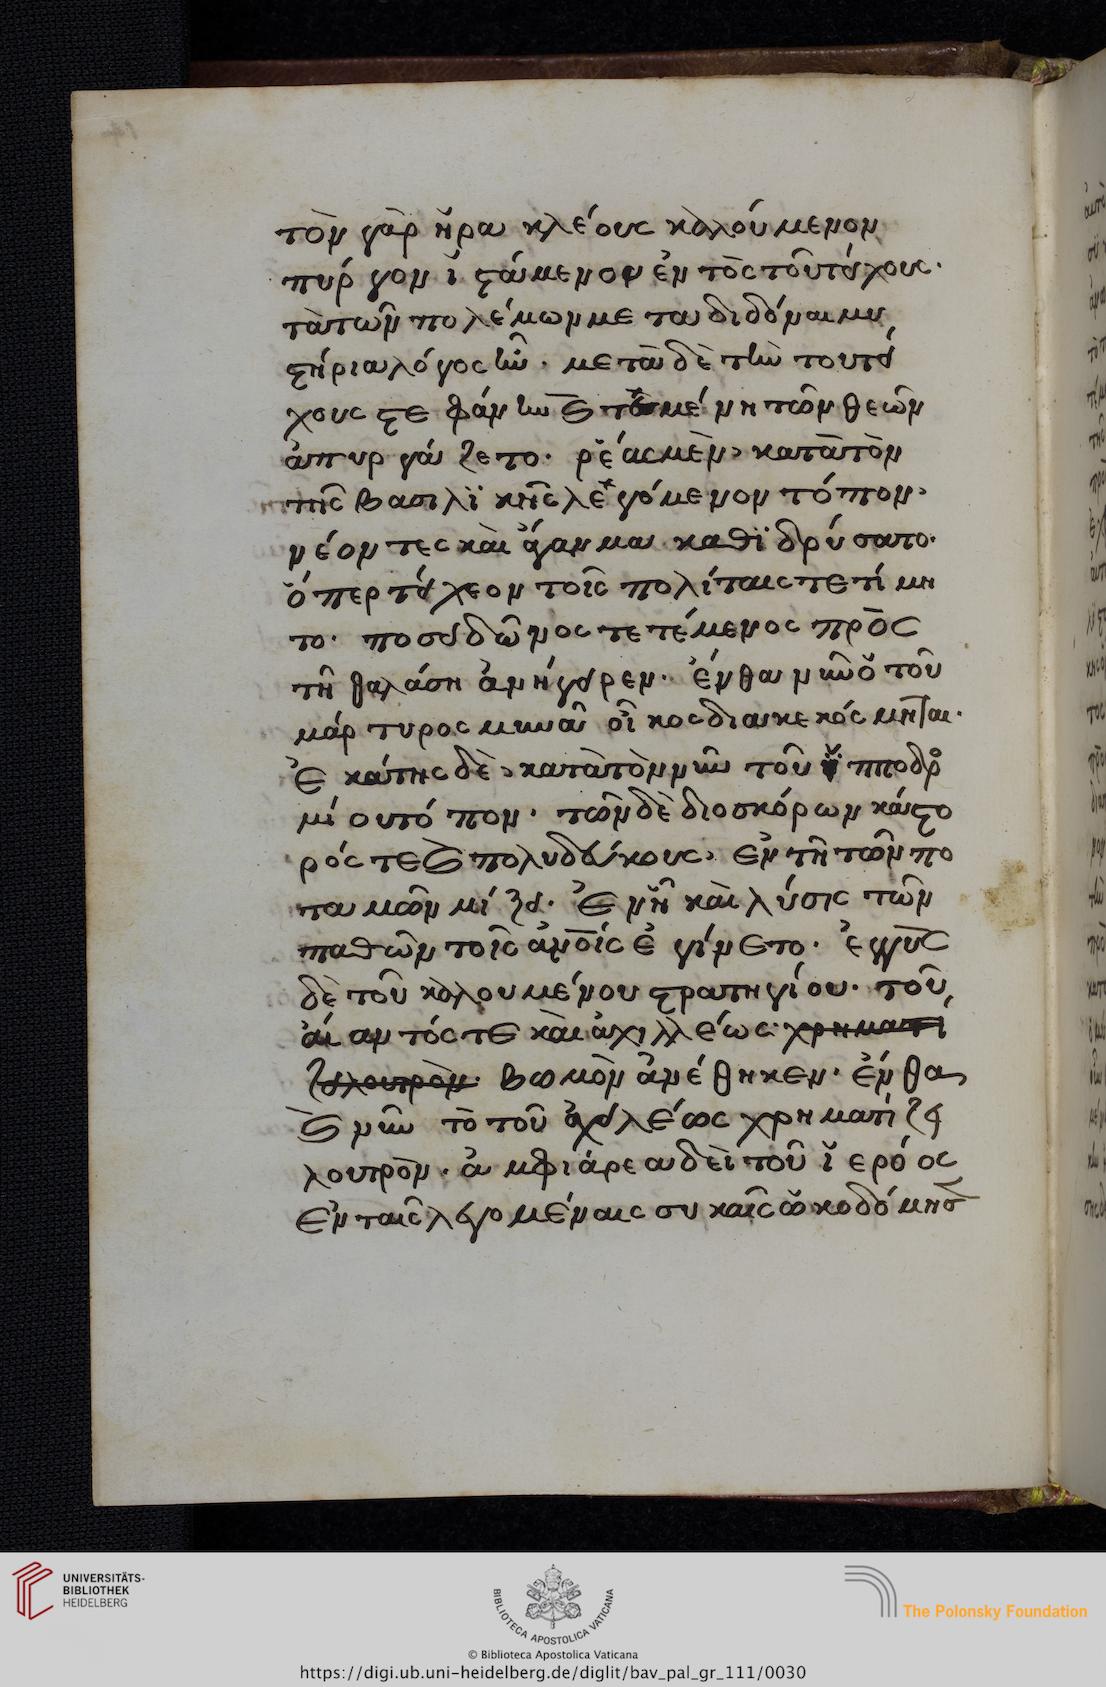 τὸν γὰρ ἥρα κλέους καλούμενον
πύρ γον ἱ ϛάμενον ἐν τὸς τοῦ τείχους·
τὰ τῶν πολέμων με τα διδόναι μυ
ϛήρια λόγος ἦν· μετὰ δὲ τὴν του τεί
χους ϛε φάνην ϗ μένη τῶν θεῶν
ἀπυρ γά ζετο· ῥέας μὲν, κατὰ τὸν
τῆς βασιλϊ κῆς λεγόμενον τόπον,
νέον τες καὶ ἄγαλμα καθϊ δρύ σατο·
ὅπερ τύχεον τοῖς πολίταις τετί μη
το· ποσειδῶνος τε τέμενος πρὸς
τῆ θαλάση ἀνήγειρεν· ἔνθα νῦν ὁ τοῦ
μάρ τυρος μηνᾶ οἶ κος διακεκόςμηται·
Ἑ κάτης δὲ, κατὰ τὸν νῦν τοῦ ἱπποδρο
μί ου τό πον· τῶν δὲ διοσκόρων κάϛο
ρός τε ϗ πολυδεύκους, ἐν τῆ τῶν πο
ταμῶν μί ξει· Ἐν ἧ καὶ λύσις τῶν
παθῶν τοῖς ἀνοις ἐ γίνετο· ἐγγὺς
δὲ τοῦ καλουμένου ϛρατηγίου· τοῦ
αἴ αντός τε καὶ ἀχιλλέως· χρηματί
ζει λουτρὸν· βωμὸν ἀνέ θηκεν· ἔνθα
ϗ νῦν τὸ τοῦ ἀχιλέως χρηματί ζει
λουτρὸν· ἀ μφιάρεα δὲ τοῦ ἵ ερό ος
ἐν ταῖς λεγομέναις συ καῖς ὠκοδόμησ
UNIVERSITÄTS-
BIBLIOTHEK
HEIDELBERG
BIBLIOTECA APOSTOLICA VATICANA
The Polonsky Foundation
© Biblioteca Apostolica Vaticana
https://digi.ub.uni-heidelberg.de/diglit/bav_pal_gr_111/0030